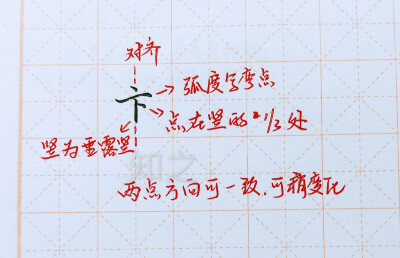 对齐
卞
弧度与弯点
点在竖的1/3处
竖为垂露竖
知之
两点方向可一致.可稍变化